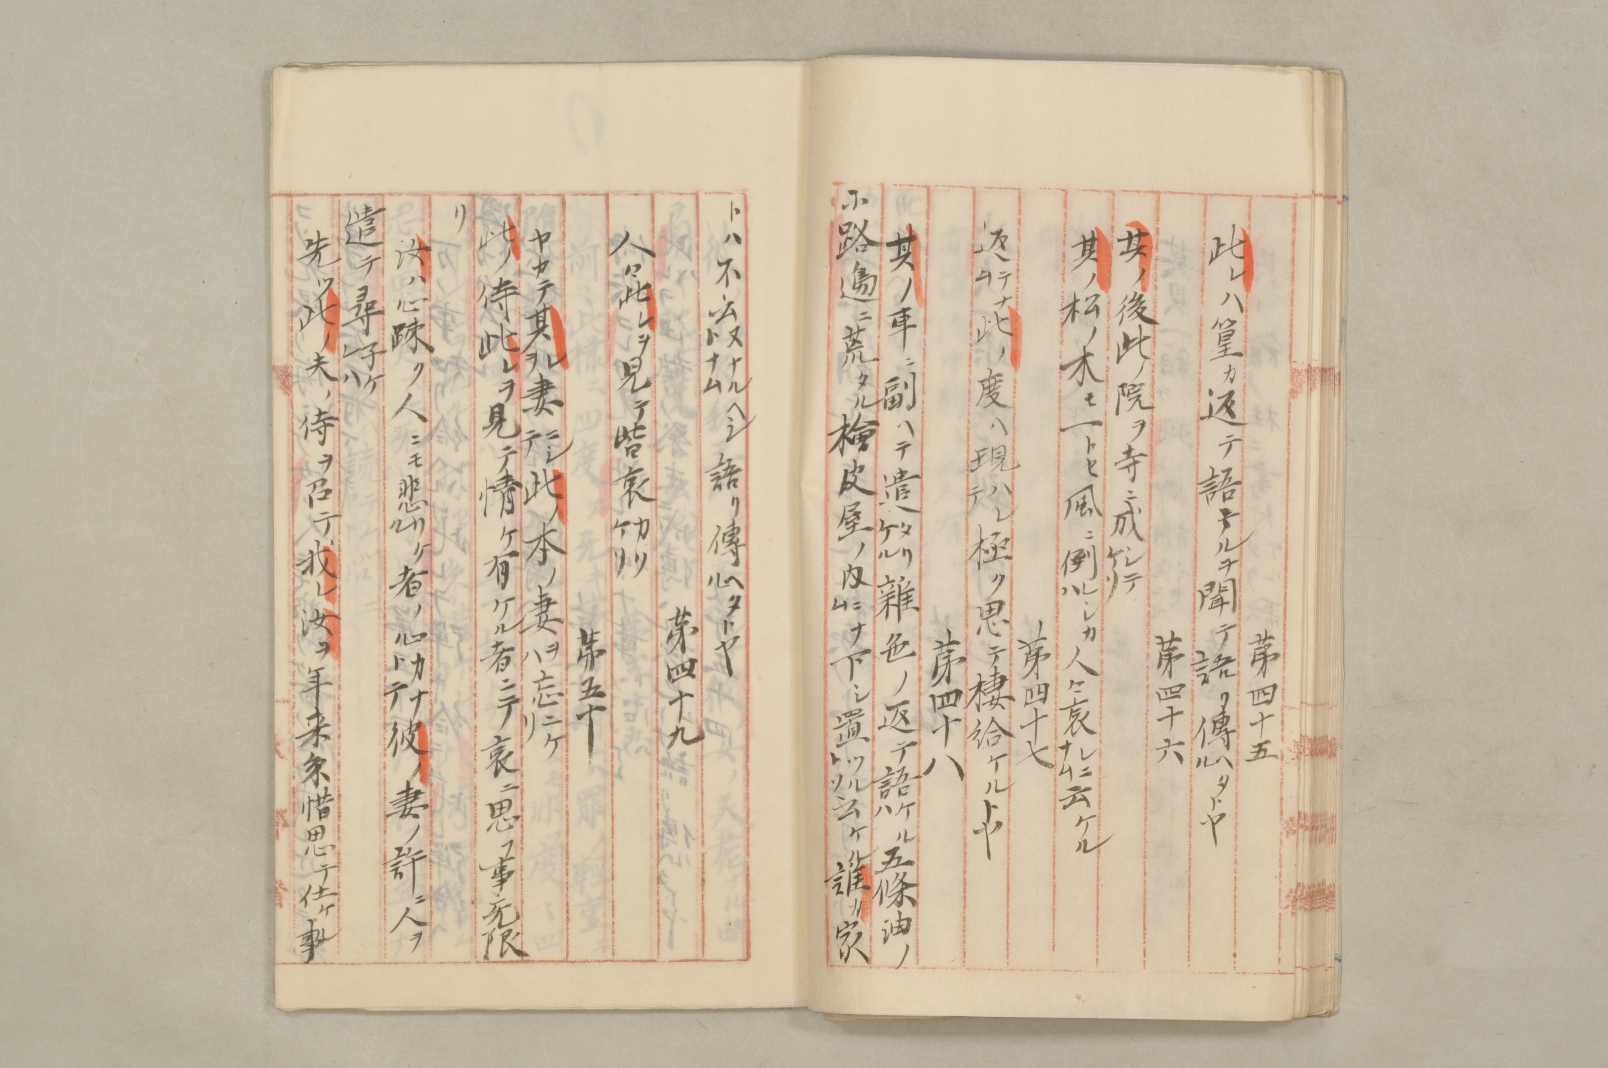 第四十五
此レハ篁カ返テ語ケルヲ聞テ語リ傳ヘタルトヤ
第四十六
其ノ後此ノ院ヲ寺ニ成シテケリ
其ノ松ノ木モ一トヒ風ニ倒レシカハ人々哀レニナム云ケル
第四十七
返テナム此ノ度ハ現ハレテ極ク思テ棲給ケルトヤ
第四十八
其ノ車ニ副ハテ遣タリケル雜色ノ返テ語ケルハ五條油ノ
小路邊ニ荒タル檜皮屋ノ内ニナム下シ置ツルトソ云ケル誰カ家
トハ不云ヌトナムナルヘシ語リ傳ヘタルトヤ
第四十九
人々此レヲ見テ皆哀カリケリ
第五十
ヤカテ其ルヲ妻ニシテ此ノ本ノ妻ヲハ忘ニケリ
此ノ侍此レヲ見テ情ケ有ケル者ニテ哀ニ思フ事无限
リ
汝ハ心疎ク人ニモ悲リケル者ノ心カナトテ彼ノ妻ノ許ニ人ヲ
遣テ尋子ケレハ
先ツ此ノ夫ノ侍ヲ召テ我レ汝ヲ年来糸惜思テ仕ケル事